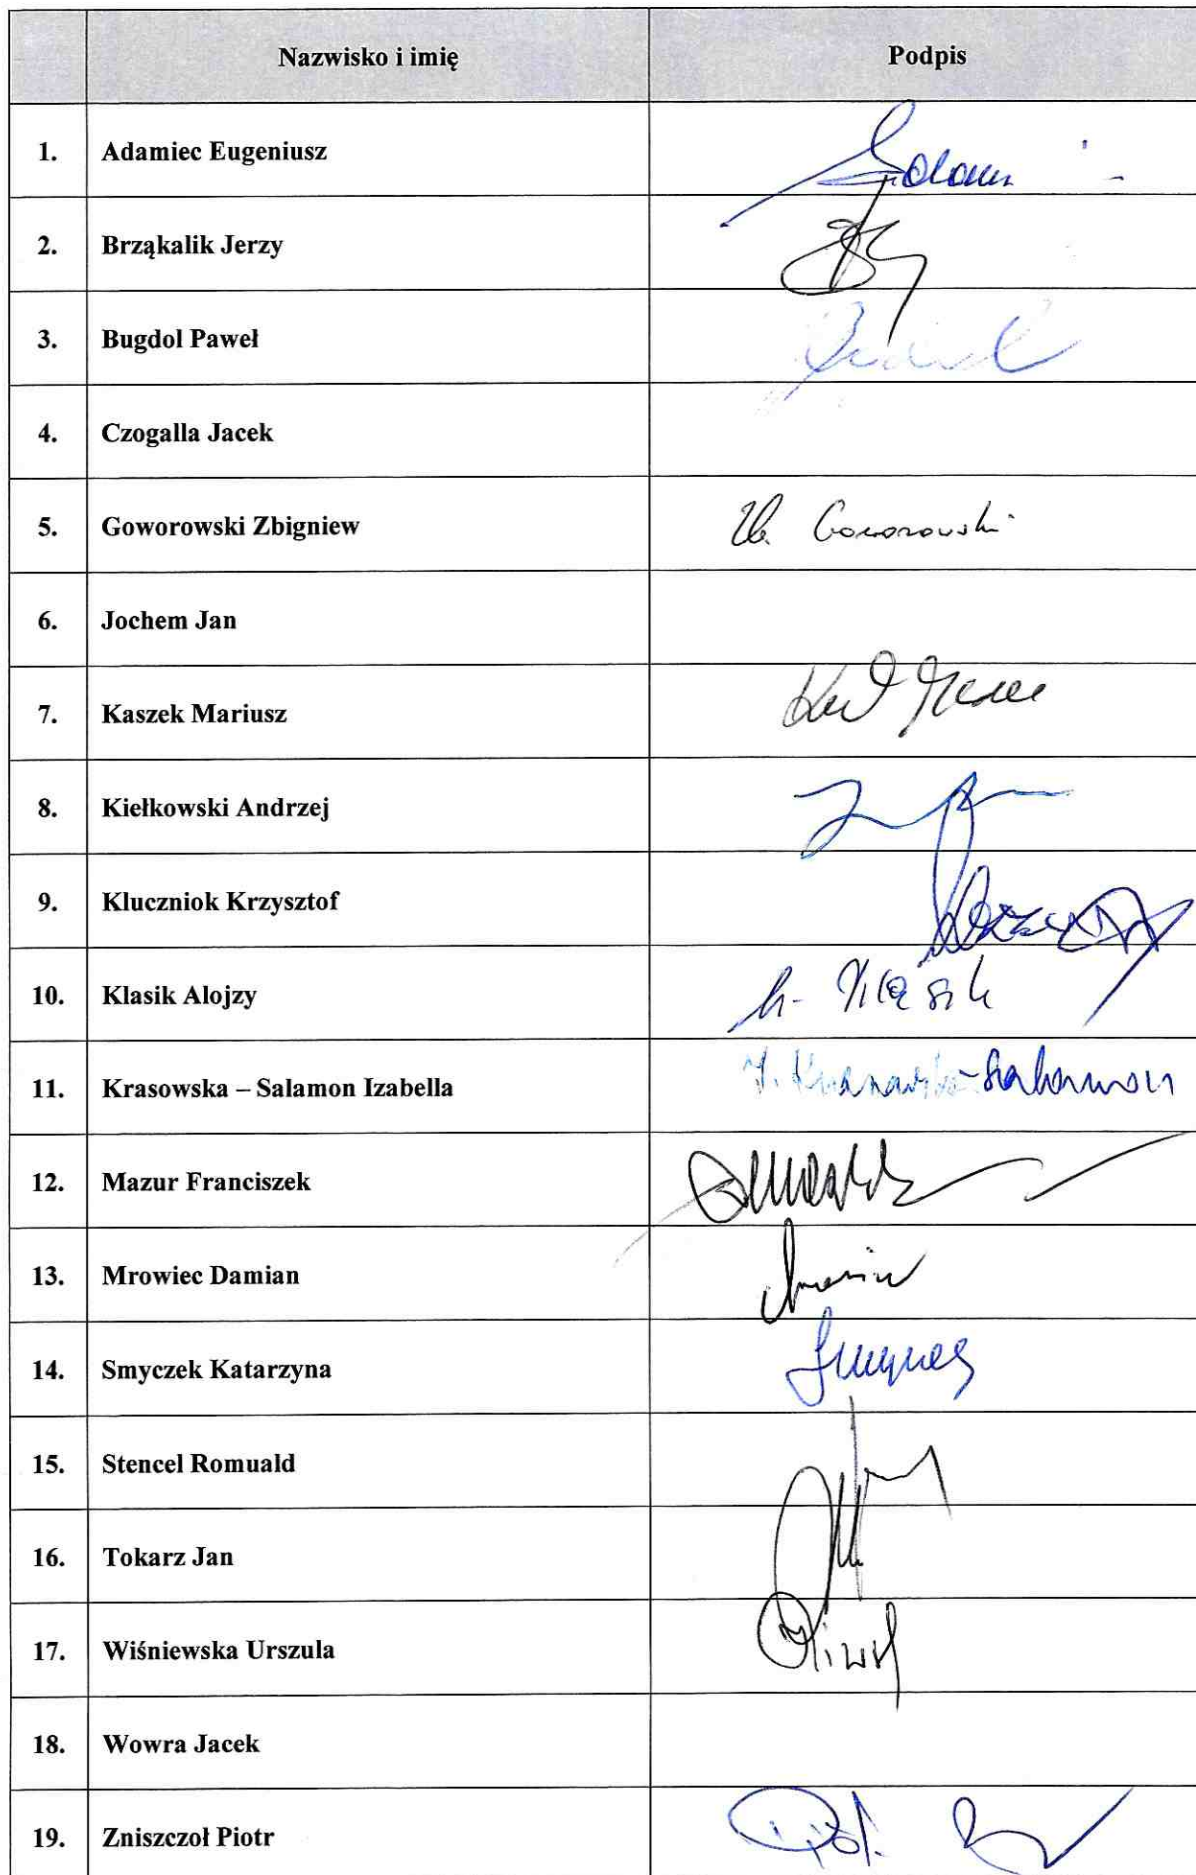 Nazwisko i imię Podpis
1. Adamiec Eugeniusz
2. Brząkalik Jerzy
3. Bugdol Paweł
4. Czogalla Jacek
5. Goworowski Zbigniew Zb. Goworowski
6. Jochem Jan
7. Kaszek Mariusz
8. Kiełkowski Andrzej
9. Kluczniok Krzysztof
10. Klasik Alojzy
11. Krasowska – Salamon Izabella I. Krasowska-Salamon
12. Mazur Franciszek
13. Mrowiec Damian
14. Smyczek Katarzyna
15. Stencel Romuald
16. Tokarz Jan
17. Wiśniewska Urszula
18. Wowra Jacek
19. Zniszczoł Piotr